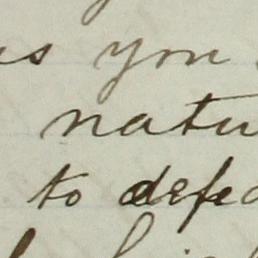 as you
natu
to defe